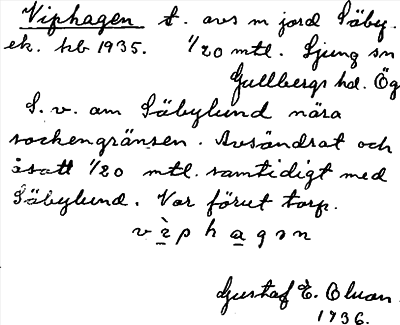 Viphagen t. avs m jord Säby.
ek. kb 1935. 1/20 mtl. Ljung sn
Gullbergs hd. Ög
S. v. om Säbylund nära
sockengränsen. Avsöndrat och
åsatt 1/20 mtl. samtidigt med
Säbylund. Var förut torp.
v ì p h a g ə n
Gustaf E. Olsson
1936.